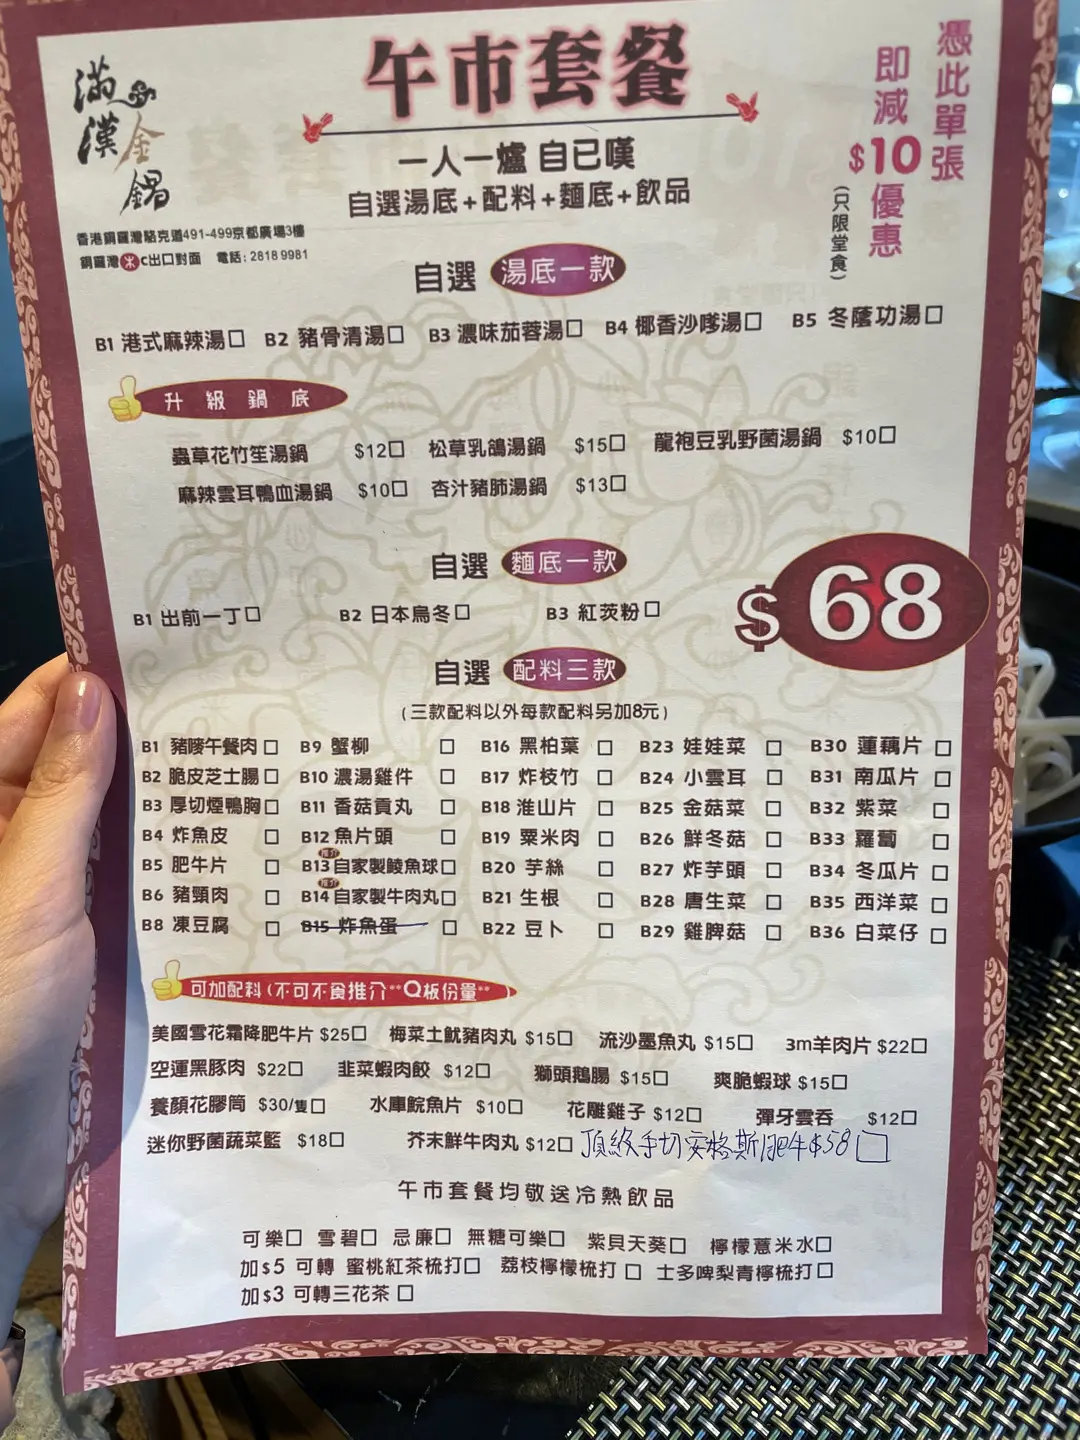 滿漢金鍋
午市套餐
一人一爐 自已嘆
自選湯底+配料+麵底+飲品
憑此單張
即減$10優惠
(只限堂食)
香港銅鑼灣駱克道491-499京都廣場3樓
銅鑼灣 C出口對面 電話: 2818 9981
自選 湯底一款
B1 港式麻辣湯□ B2 豬骨清湯□ B3 濃味茄蓉湯□ B4 椰香沙嗲湯□ B5 冬蔭功湯□
升級鍋底
蟲草花竹笙湯鍋 $12□ 松草乳鴿湯鍋 $15□ 龍袍豆乳野菌湯鍋 $10□
麻辣雲耳鴨血湯鍋 $10□ 杏汁豬肺湯鍋 $13□
自選 麵底一款
B1 出前一丁□ B2 日本烏冬□ B3 紅茨粉□
$68
自選 配料三款
(三款配料以外每款配料另加8元)
B1 豬嘜午餐肉□ B9 蟹柳 □ B16 黑柏葉 □ B23 娃娃菜 □ B30 蓮藕片 □
B2 脆皮芝士腸□ B10 濃湯雞件 □ B17 炸枝竹 □ B24 小雲耳 □ B31 南瓜片 □
B3 厚切煙鴨胸□ B11 香菇貢丸 □ B18 淮山片 □ B25 金菇菜 □ B32 紫菜 □
B4 炸魚皮 □ B12 魚片頭 □ B19 粟米肉 □ B26 鮮冬菇 □ B33 蘿蔔 □
B5 肥牛片 □ 推介 B13 自家製鯪魚球□ B20 芋絲 □ B27 炸芋頭 □ B34 冬瓜片 □
B6 豬頸肉 □ 推介 B14 自家製牛肉丸□ B21 生根 □ B28 唐生菜 □ B35 西洋菜 □
B8 凍豆腐 □ B15 炸魚蛋 □ B22 豆卜 □ B29 雞脾菇 □ B36 白菜仔 □
可加配料(不可不食推介**Q板份量**
美國雪花霜降肥牛片 $25□ 梅菜土魷豬肉丸 $15□ 流沙墨魚丸 $15□ 3m羊肉片 $22□
空運黑豚肉 $22□ 韭菜蝦肉餃 $12□ 獅頭鵝腸 $15□ 爽脆蝦球 $15□
養顏花膠筒 $30/隻□ 水庫鯇魚片 $10□ 花雕雞子 $12□ 彈牙雲吞 $12□
迷你野菌蔬菜籃 $18□ 芥末鮮牛肉丸 $12□ 頂級手切安格斯肥牛$58□
午市套餐均敬送冷熱飲品
可樂□ 雪碧□ 忌廉□ 無糖可樂□ 紫貝天葵□ 檸檬薏米水□
加$5 可轉 蜜桃紅茶梳打□ 荔枝檸檬梳打□ 士多啤梨青檸梳打□
加$3 可轉三花茶 □